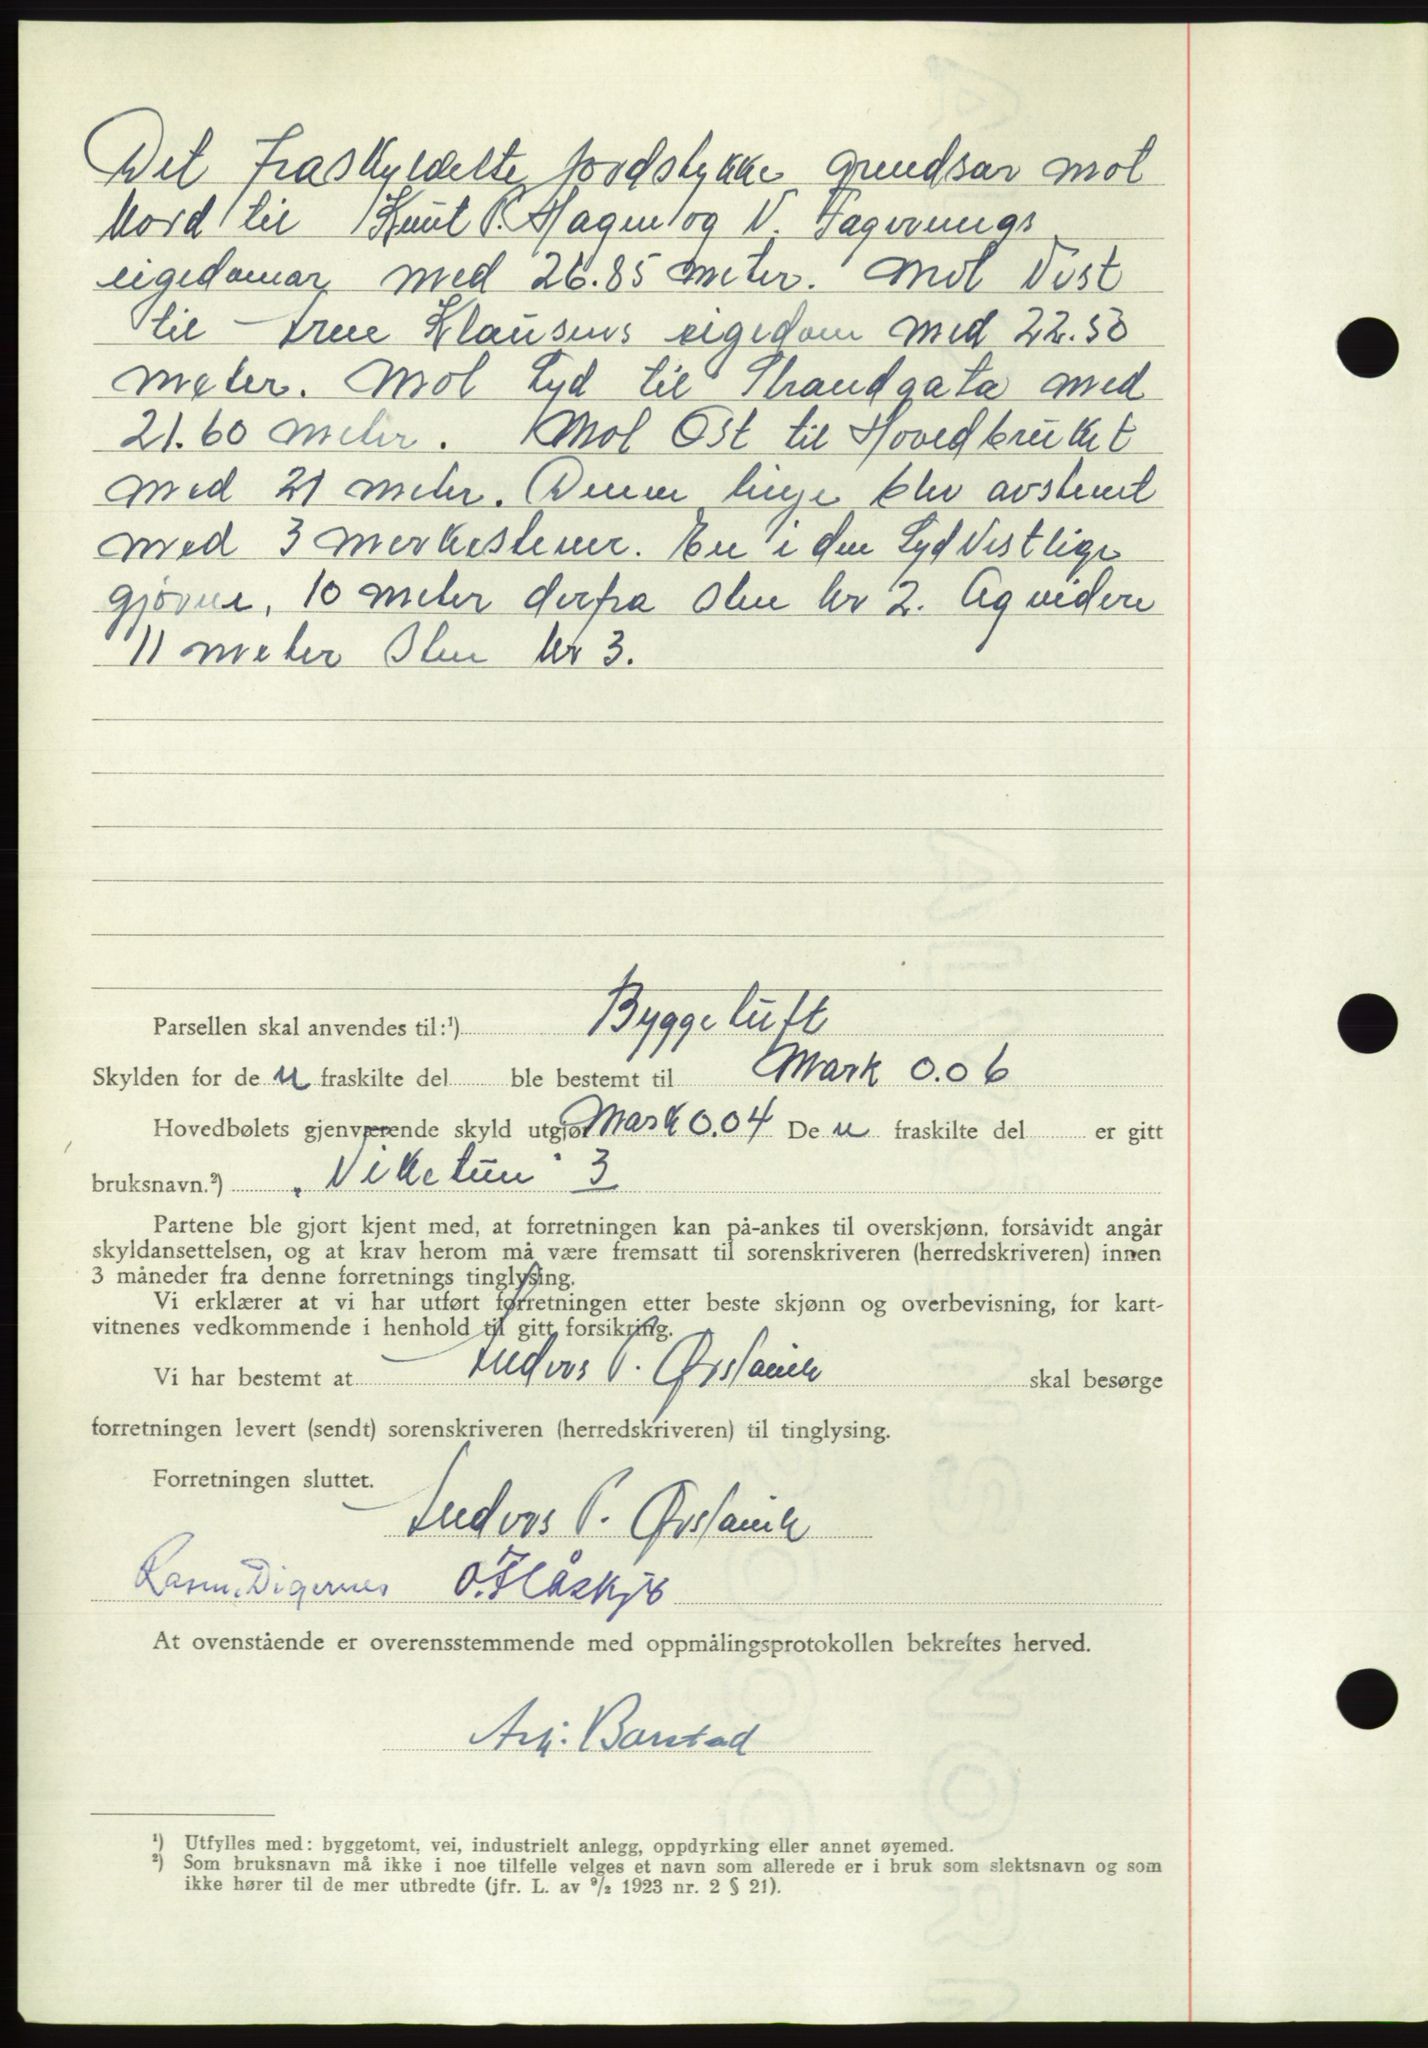 Det fraskyldelte jordstykke grendsar mot
Nord til Knut P. Hagen og N. Fagervungs
eigedomar med 26.85 meter. Mot Vest
til Arne Klausens eigedom med 22.50
meter. Mot Syd til Strandgata med
21.60 meter. Mot Ost til Hovedbruket
med 21 meter. Denne linje blev avstemt
med 3 merkestener. En i den SydVestlige
gjørne, 10 meter derfra Sten Nr 2. Og videre
11 meter Sten Nr 3.
Parsellen skal anvendes til:¹) Byggetuft
Skylden for de n fraskilte del ble bestemt til Mark 0.06
Hovedbølets gjenværende skyld utgjør Mark 0.04 De n fraskilte del er gitt
bruksnavn.²) „Niketun" 3
Partene ble gjort kjent med, at forretningen kan på-ankes til overskjønn, forsåvidt angår
skyldansettelsen, og at krav herom må være fremsatt til sorenskriveren (herredskriveren) innen
3 måneder fra denne forretnings tinglysing.
Vi erklærer at vi har utført forretningen etter beste skjønn og overbevisning, for kart-
vitnenes vedkommende i henhold til gitt forsikring.
Vi har bestemt at Andros P. Ørstavik skal besørge
forretningen levert (sendt) sorenskriveren (herredskriveren) til tinglysing.
Forretningen sluttet.
Andros P. Ørstavik
Rasm. Digernes O. Flåskjø
At ovenstående er overensstemmende med oppmålingsprotokollen bekreftes herved.
Asbj. Barstad
¹) Utfylles med: byggetomt, vei, industrielt anlegg, oppdyrking eller annet øyemed.
²) Som bruksnavn må ikke i noe tilfelle velges et navn som allerede er i bruk som slektsnavn og som
ikke hører til de mer utbredte (jfr. L. av ⁹/₂ 1923 nr. 2 § 21).